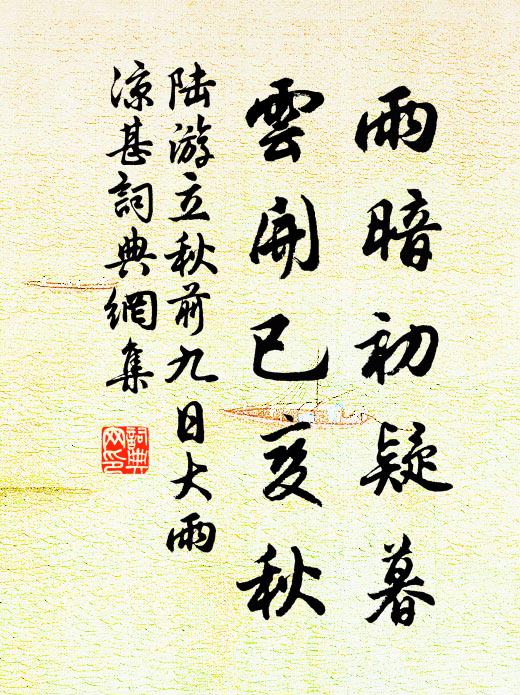 雨暗初疑暮
雲開已变秋
陸游立秋前九日大雨
涼甚詞典網集
詞典
网印